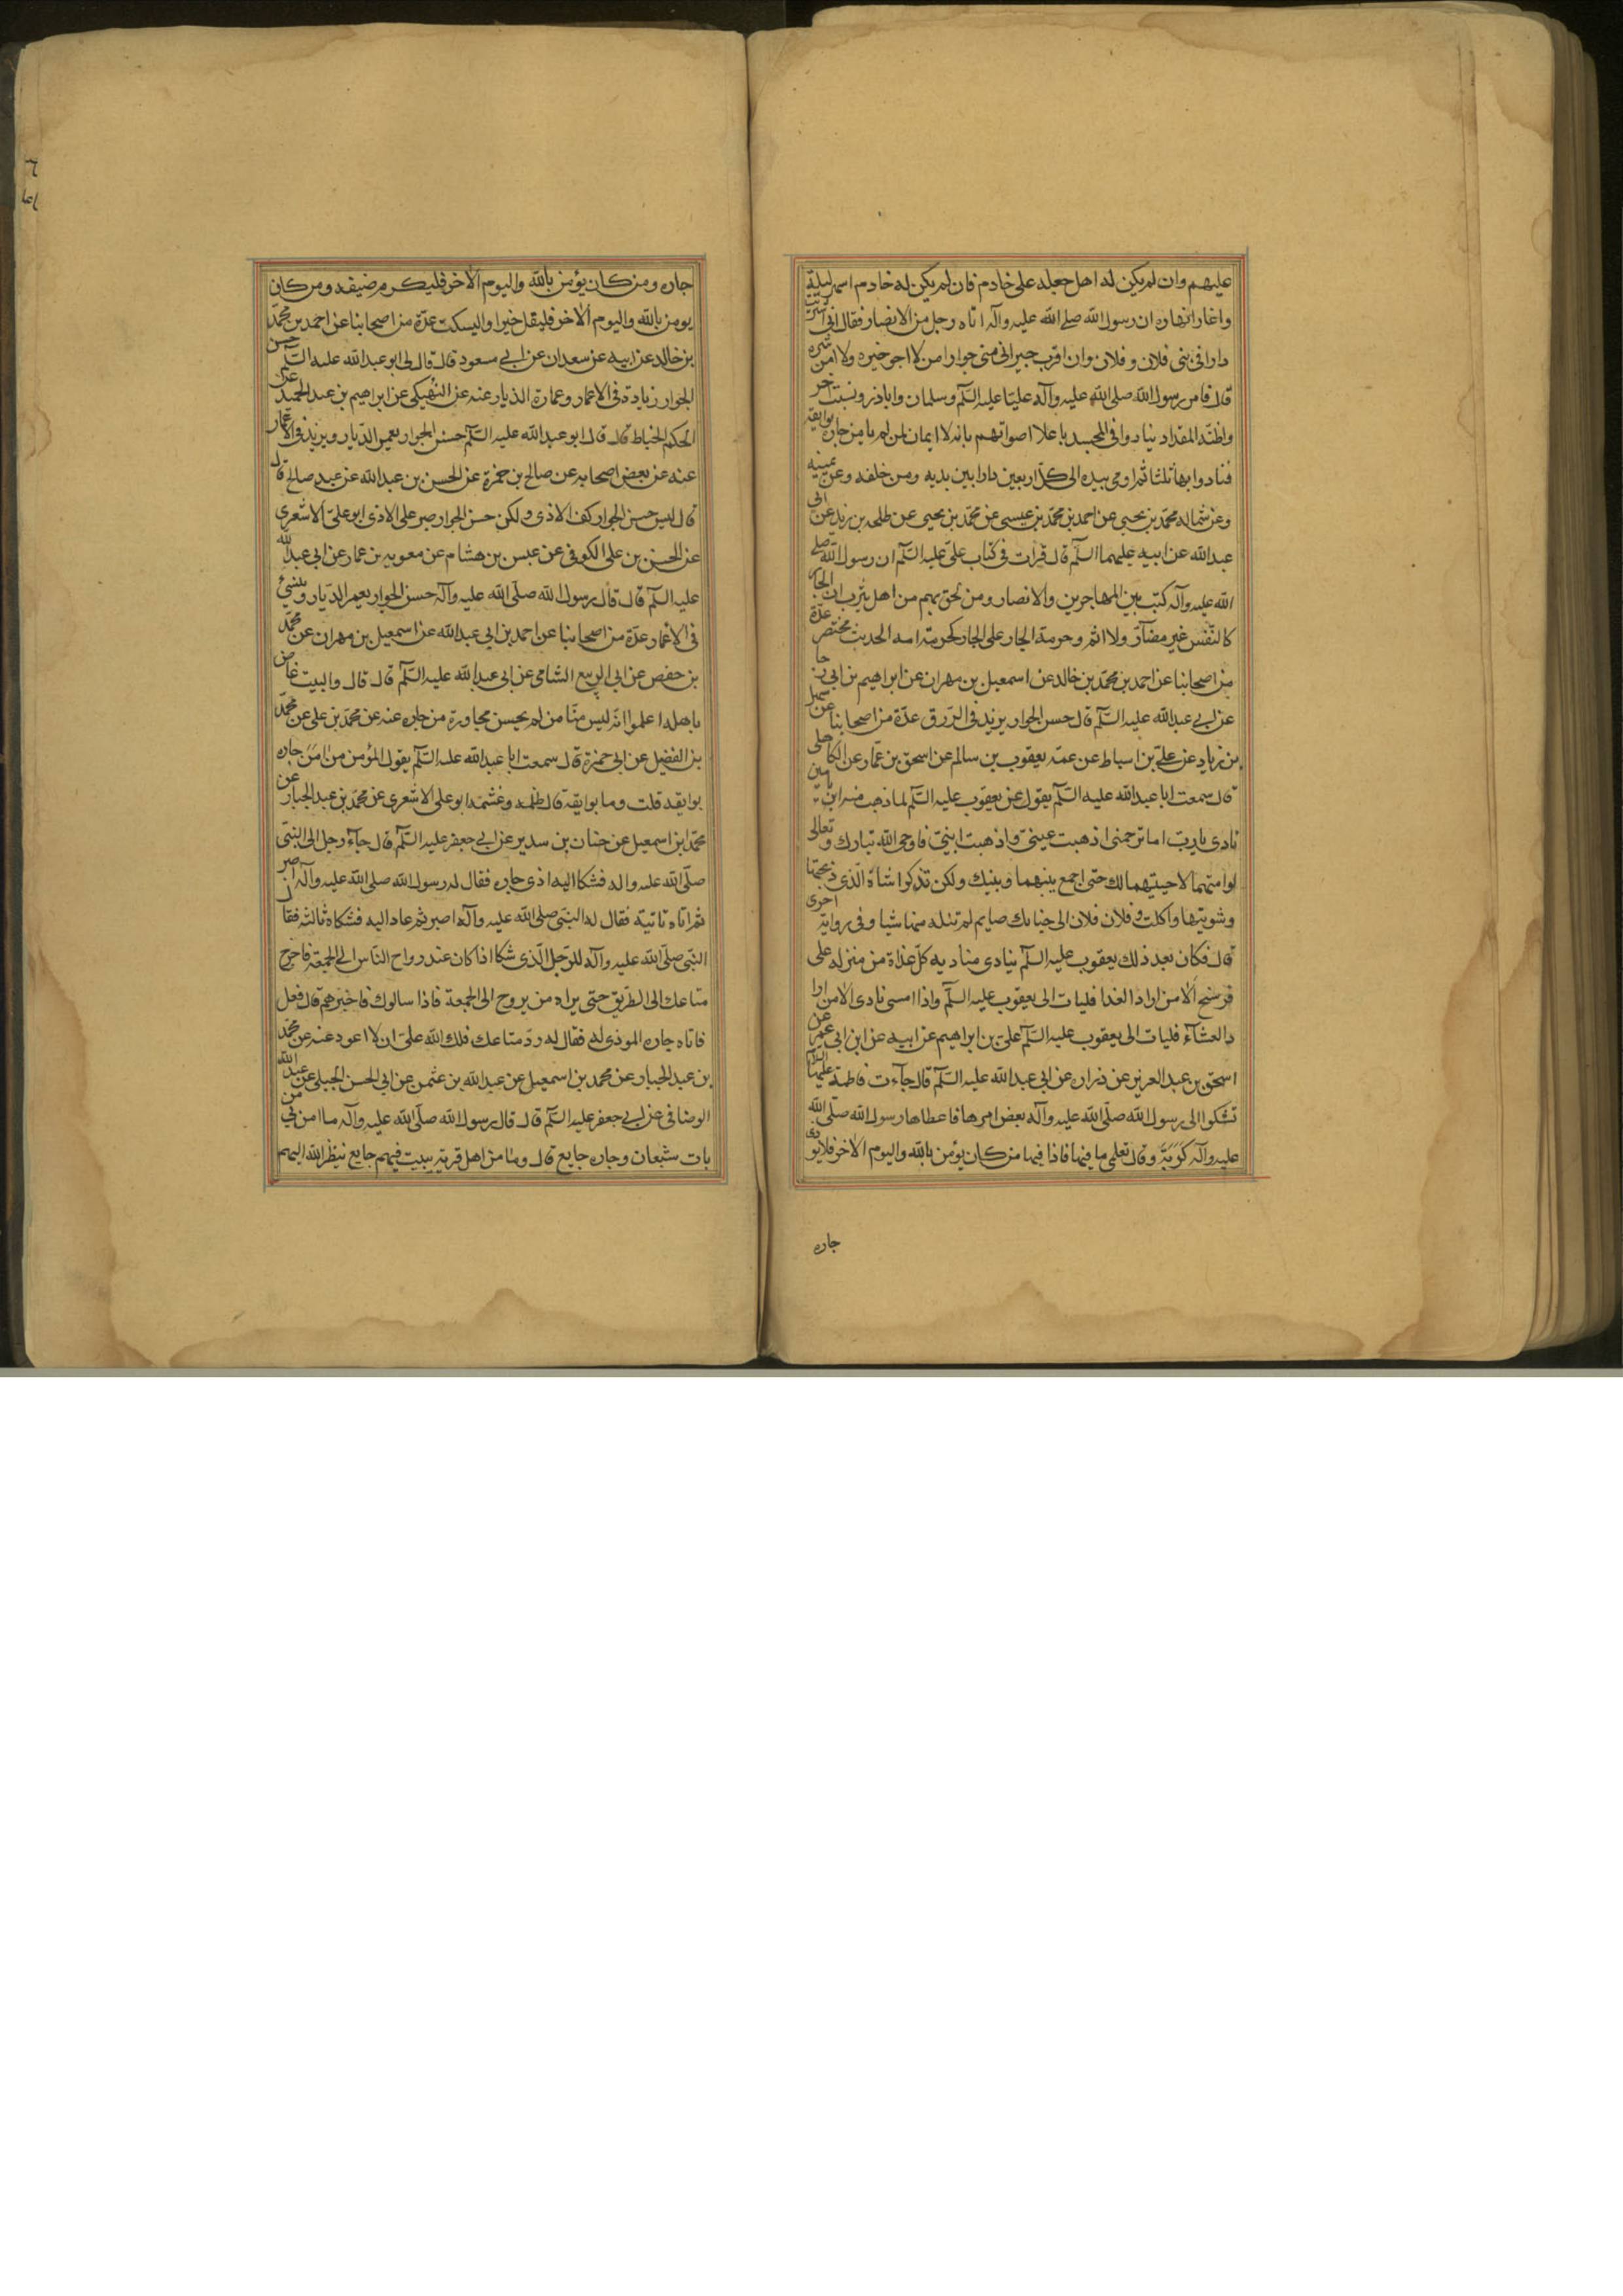 عليهم وان لم يكن له اهل جعله على خادم فان لم يكن له خادم اسهر ليلة
واغار انهاره ان رسول الله صلى الله عليه وآله اتاه رجل من الانصار فقال انى اشتريت
دارا فى بنى فلان و فلان وان اقرب جيرانى منى جوارا من لا ارجو خيره ولا امن شره
قال فامر رسول الله صلى الله عليه وآله عليا عليه السلم وسلمان واباذر ونسيت اخر
واظنه المقداد ينادوا فى المسجد باعلا اصواتهم بانه لا ايمان لمن لم يامن جاره بوايقه
فنادوا بها ثلثا ثم اومى بيده الى كل اربعين دارا بين يديه ومن خلفه وعن يمينه
وعن شماله محمد بن يحيى عن احمد بن محمد بن عيسى عن محمد بن يحيى عن طلحه بن زيد عن ابى
عبدالله عن ابيه عليهما السلم قال قرات فى كتاب على عليه السلم ان رسول الله صلى
الله عليه وآله كتب بين المهاجرين والانصار ومن لحق بهم من اهل يثرب ان الجار
كالنفس غير مضار ولا اثم وحرمة الجار على الجار كحرمة امه الحديث مختصر عدة
من اصحابنا عن احمد بن محمد بن خالد عن اسمعيل بن مهران عن ابراهيم بن ابى رجا
عن ابى عبدالله عليه السلم قال حسن الجوار يزيد فى الرزق عدة من اصحابنا عن سهل
بن زياد عن على بن اسباط عن عمه يعقوب بن سالم عن اسحق بن عمار عن الكاهلى
قال سمعت ابا عبدالله عليه السلم يقول عن يعقوب عليه السلم لما ذهب منه ابن يامين
نادى يا رب اما ترحمنى اذهبت عينى واذهبت ابنى فاوحى الله تبارك وتعالى
لو امتهما لاحييتهما لك حتى اجمع بينهما وبينك ولكن تذكر اشاة الذى ذبحتها
وشويتها واكلت و فلان فلان الى جنابك صايم لم تنله منها شيا وفى رواية اخرى
قال فكان بعد ذلك يعقوب عليه السلم ينادى مناديه كل غداة من منزله على
فرسخ الا من اراد الغدا فليات الى يعقوب عليه السلم واذا امسى نادى الا من ارا
د العشاء فليات الى يعقوب عليه السلم على بن ابراهيم عن ابيه عن ابن ابى عمير عن
اسحق بن عبدالعزيز عن زراره عن ابى عبدالله عليه السلم قال جاءت فاطمة عليها السلام
تشكوا الى رسول الله صلى الله عليه وآله بعض امرها فاعطاها رسول الله صلى الله
عليه وآله كربة وقال تعلمى ما فيها فاذا فيها من كان يؤمن بالله واليوم الاخر فلا يوذى
جاره
جاره ومن كان يؤمن بالله واليوم الاخر فليكرم ضيفه ومن كان
يومن بالله واليوم الاخر فليقل خيرا واليسكت عدة من اصحابنا عن احمد بن محمد
بن خالد عن ابيه عن سعدان عن ابى مسعود قال قال لى ابو عبدالله عليه السلم حسن
الجوار زيادة فى الاعمار وعمارة الديار عنه عن النهيكى عن ابراهيم بن عبدالحميد عن
الحكم الخياط قال قال ابو عبدالله عليه السلم حسن الجوار يعمر الديار ويزيد فى الاعمار
عنه عن بعض اصحابه عن صالح بن حمزة عن الحسن بن عبدالله عن عبد صالح قال
قال ليس حسن الجوار كف الاذى ولكن حسن الجوار صبر على الاذى ابو على الاشعرى
عن الحسن بن على الكوفى عن عبس بن هشام عن معويه بن عمار عن ابى عبدالله
عليه السلم قال قال رسول الله صلى الله عليه وآله حسن الجوار يعمر الديار وينسئ
فى الاعمار عدة من اصحابنا عن احمد بن ابى عبدالله عن اسمعيل بن مهران عن محمد
بن حفص عن ابى الربيع الشامى عن ابى عبدالله عليه السلم قال قال والبيت غاص
باهله اعلموا انه ليس منا من لم يحسن مجاورة من جاره عنه عن محمد بن على عن محمد
بن الفضيل عن ابى حمزة قال سمعت ابا عبدالله عليه السلم يقول المؤمن من امن جاره
بوايقه قلت وما بوايقه قال ظلمه وغشمه ابو على الاشعرى عن محمد بن عبد الجبار عن
محمد ابن اسمعيل عن حنان بن سدير عن ابى جعفر عليه السلم قال جاء رجل الى النبى
صلى الله عليه واله فشكا اليه اذى جاره فقال له رسول الله صلى الله عليه وآله اصبر
ثم اتاه ثانية فقال له النبى صلى الله عليه وآله اصبر ثم عاد اليه فشكاه ثالثه فقال
النبى صلى الله عليه وآله للرجل الذى شكا اذا كان عند رواح الناس الى الجمعة فاخرج
متاعك الى الطريق حتى يراه من يروح الى الجمعة فاذا سالوك فاخبرهم قال ففعل
فاتاه جاره الموذى له فقال له رد متاعك فلك الله على ان لا اعود عنه عن محمد
بن عبد الجبار عن محمد بن اسمعيل عن عبدالله بن عثمن عن ابى الحسن الجبلى عن عبيد الله
الوصافى عن ابى جعفر عليه السلم قال قال رسول الله صلى الله عليه وآله ما امن بى من
بات شبعان وجاره جايع قال وما من اهل قرية يبيت فيهم جايع ينظر الله اليهم